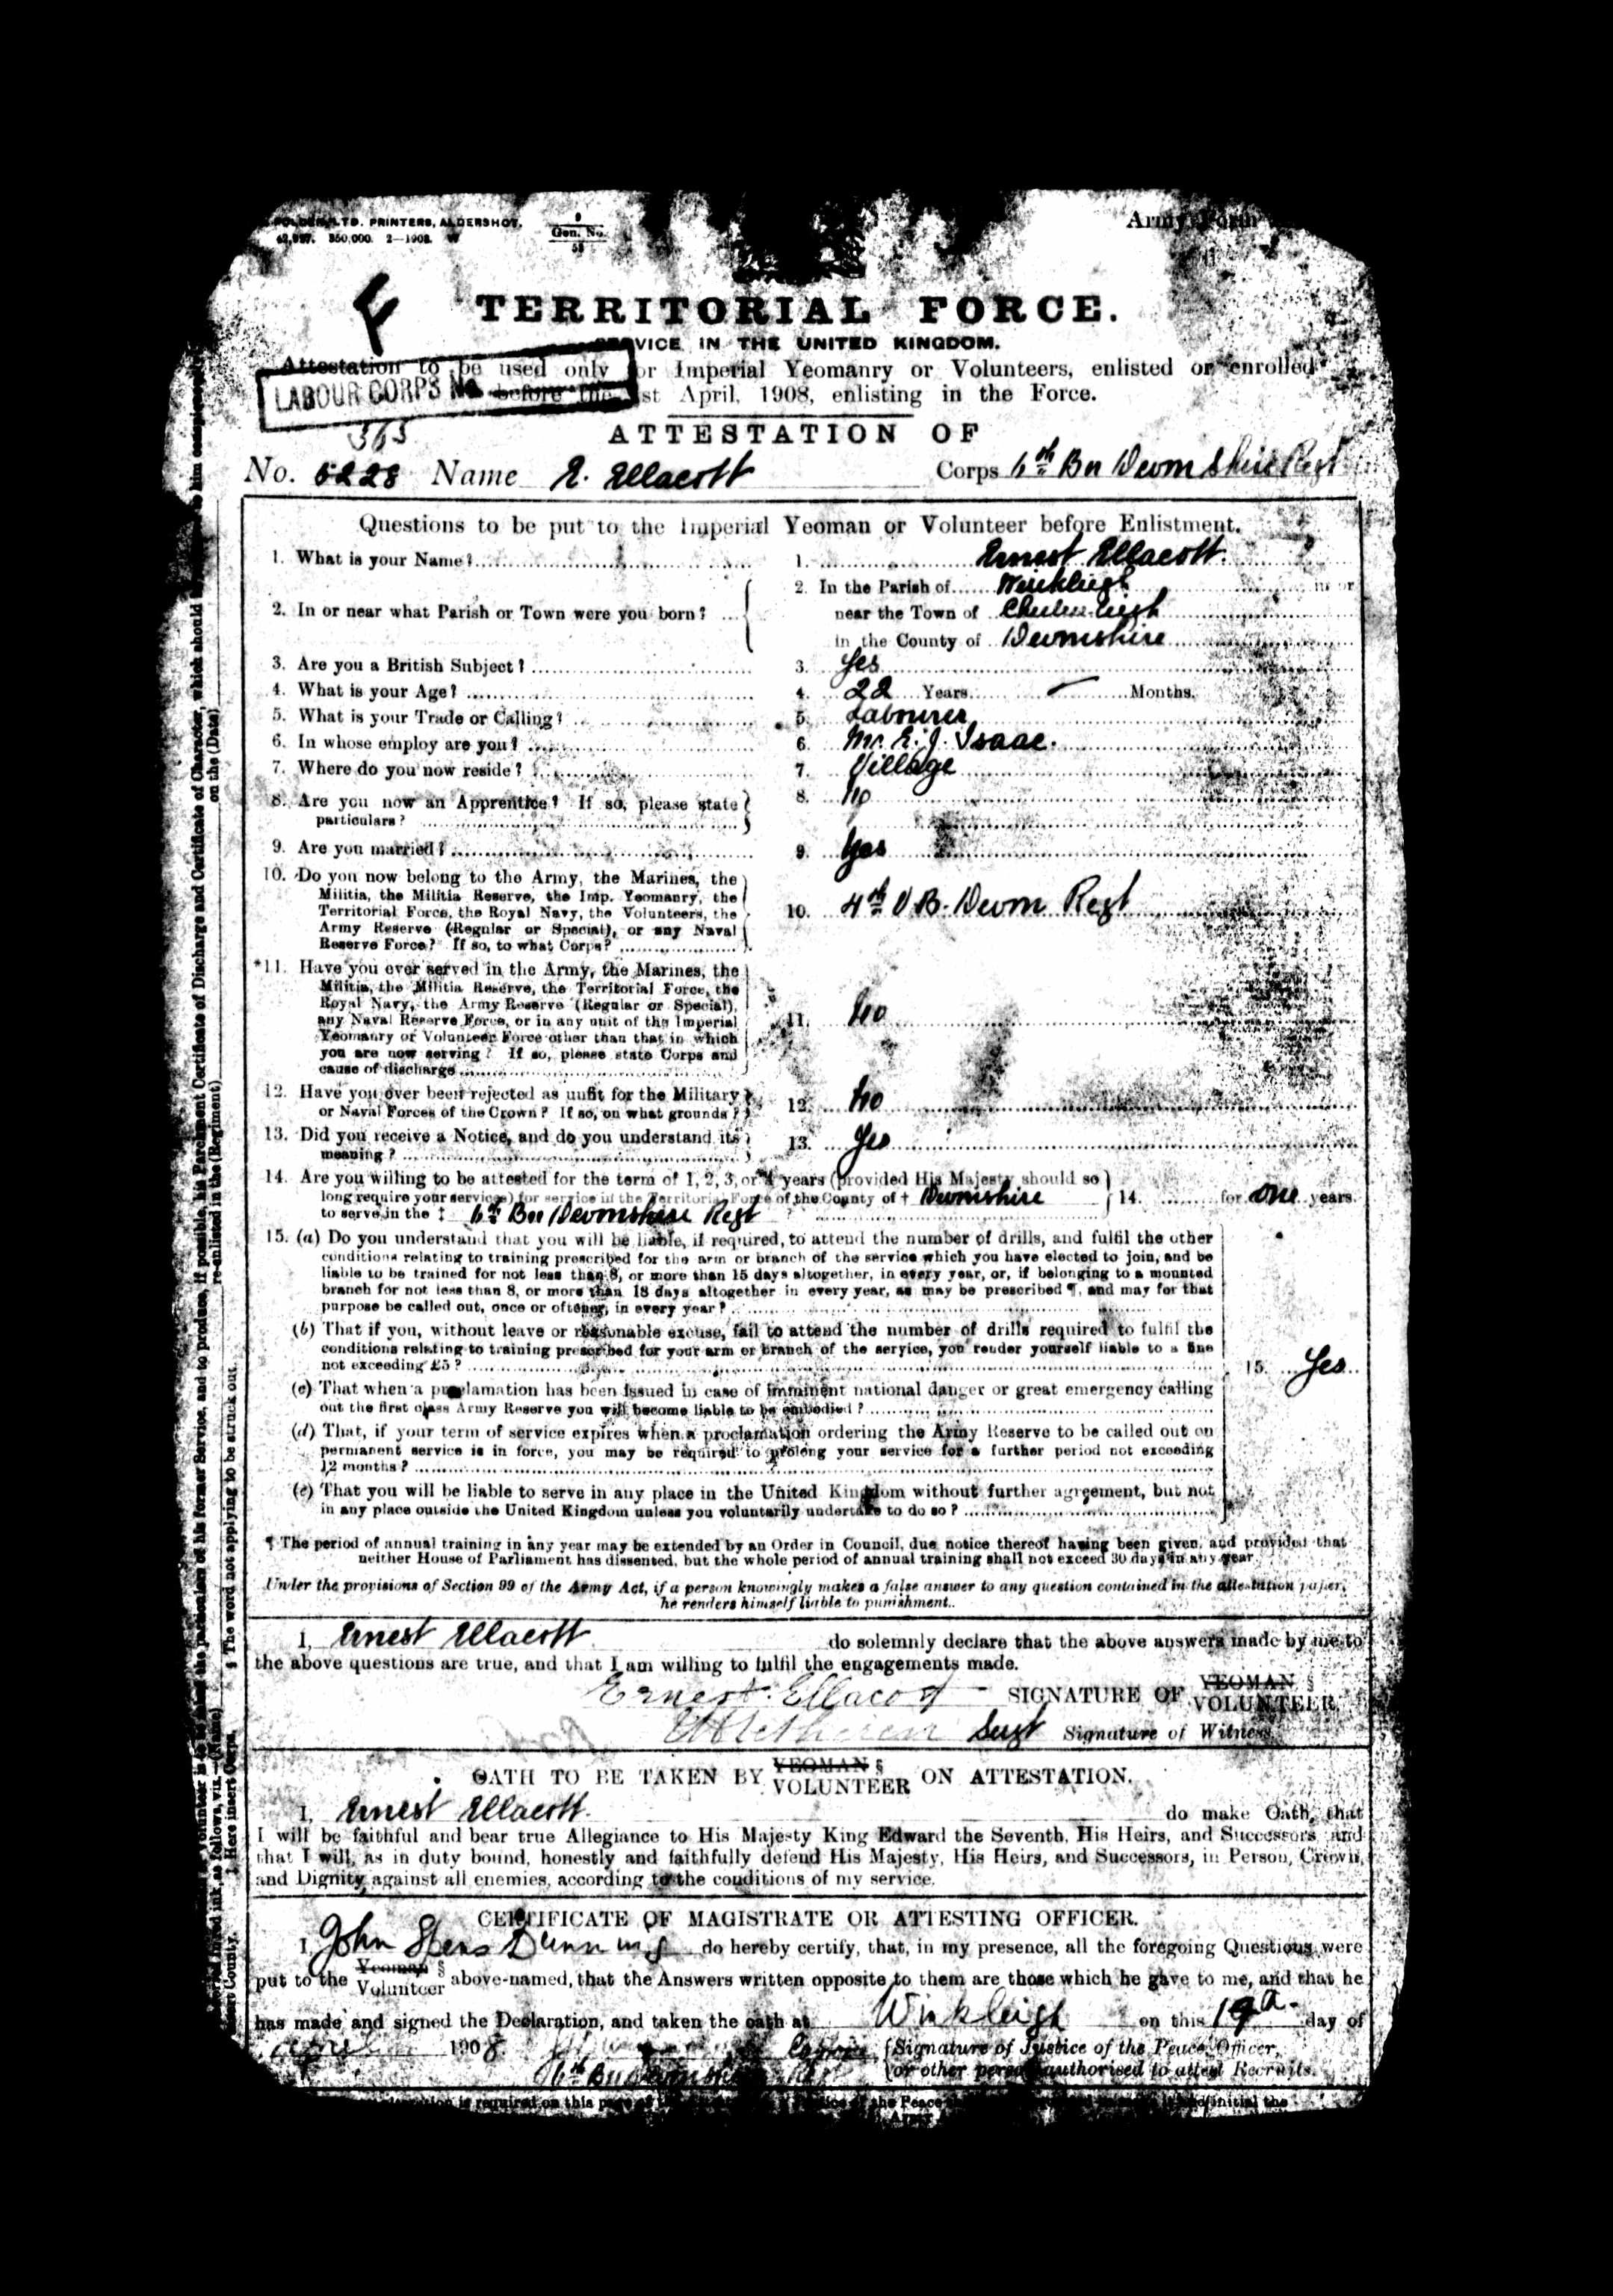 LTD. PRINTERS, ALDERSHOT.
350,000. 2—1908.
Gen. No.
Army Form
F
TERRITORIAL FORCE.
SERVICE IN THE UNITED KINGDOM.
Attestation to be used only for Imperial Yeomanry or Volunteers, enlisted or enrolled
before the 1st April, 1908, enlisting in the Force.
LABOUR CORPS No.
ATTESTATION OF
363
No. 5228 Name E. Ellacott Corps 6th Bn Devonshire Regt
Questions to be put to the Imperial Yeoman or Volunteer before Enlistment.
1. What is your Name? 1. Ernest Ellacott.
2. In or near what Parish or Town were you born? 2. In the Parish of Winkleigh in or
near the Town of Chulmleigh
in the County of Devonshire
3. Are you a British Subject? 3. Yes
4. What is your Age? 4. 22 Years — Months.
5. What is your Trade or Calling? 5. Labourer
6. In whose employ are you? 6. Mr. E. J. Isaac.
7. Where do you now reside? 7. Village
8. Are you now an Apprentice? If so, please state 8. No
particulars?
9. Are you married? 9. Yes
10. Do you now belong to the Army, the Marines, the
Militia, the Militia Reserve, the Imp. Yeomanry, the
Territorial Force, the Royal Navy, the Volunteers, the 10. 4th V.B. Devon Regt
Army Reserve (Regular or Special), or any Naval
Reserve Force? If so, to what Corps?
*11. Have you ever served in the Army, the Marines, the
Militia, the Militia Reserve, the Territorial Force, the
Royal Navy, the Army Reserve (Regular or Special),
any Naval Reserve Force, or in any unit of the Imperial 11. No
Yeomanry or Volunteer Force other than that in which
you are now serving? If so, please state Corps and
cause of discharge
12. Have you ever been rejected as unfit for the Military
or Naval Forces of the Crown? If so, on what grounds? 12. No
13. Did you receive a Notice, and do you understand its 13. Yes
meaning?
14. Are you willing to be attested for the term of 1, 2, 3, or 4 years (provided His Majesty should so
long require your services) for service in the Territorial Force of the County of † Devonshire 14. for one years.
to serve in the ‡ 6th Bn Devonshire Regt
15. (a) Do you understand that you will be liable, if required, to attend the number of drills, and fulfil the other
conditions relating to training prescribed for the arm or branch of the service which you have elected to join, and be
liable to be trained for not less than 8, or more than 15 days altogether, in every year, or, if belonging to a mounted
branch for not less than 8, or more than 18 days altogether in every year, as may be prescribed ¶, and may for that
purpose be called out, once or oftener, in every year?
(b) That if you, without leave or reasonable excuse, fail to attend the number of drills required to fulfil the
conditions relating to training prescribed for your arm or branch of the service, you render yourself liable to a fine
not exceeding £5? 15. Yes
(c) That when a proclamation has been issued in case of imminent national danger or great emergency calling
out the first class Army Reserve you will become liable to be embodied?
(d) That, if your term of service expires when a proclamation ordering the Army Reserve to be called out on
permanent service is in force, you may be required to prolong your service for a further period not exceeding
12 months?
(e) That you will be liable to serve in any place in the United Kingdom without further agreement, but not
in any place outside the United Kingdom unless you voluntarily undertake to do so?
¶ The period of annual training in any year may be extended by an Order in Council, due notice thereof having been given, and provided that
neither House of Parliament has dissented, but the whole period of annual training shall not exceed 30 days in any year
Under the provisions of Section 99 of the Army Act, if a person knowingly makes a false answer to any question contained in the attestation paper,
he renders himself liable to punishment.
I, Ernest Ellacott do solemnly declare that the above answers made by me to
the above questions are true, and that I am willing to fulfil the engagements made.
Ernest Ellacott SIGNATURE OF YEOMAN § VOLUNTEER.
Sergt Signature of Witness
OATH TO BE TAKEN BY YEOMAN § VOLUNTEER ON ATTESTATION.
I, Ernest Ellacott. do make Oath, that
I will be faithful and bear true Allegiance to His Majesty King Edward the Seventh, His Heirs, and Successors, and
that I will, as in duty bound, honestly and faithfully defend His Majesty, His Heirs, and Successors, in Person, Crown,
and Dignity against all enemies, according to the conditions of my service.
CERTIFICATE OF MAGISTRATE OR ATTESTING OFFICER.
I, John Dunning do hereby certify, that, in my presence, all the foregoing Questions were
put to the Yeoman § Volunteer above-named, that the Answers written opposite to them are those which he gave to me, and that he
has made and signed the Declaration, and taken the oath at Winkleigh on this 19th day of
April 1908. Captain Signature of Justice of the Peace, Officer,
6th Bn Devonshire or other person authorised to attest Recruits.
is required on this
the Peace
initial the
Army
his Parchment Certificate of Discharge and Certificate of Character, which should
the particulars of his former Service, and to produce, if possible,
on the (Date)
re-enlisted in the (Regiment)
§ The word not applying to be struck out.
red ink, as follows, viz. (Name)
‡ Here insert Corps.
insert County.